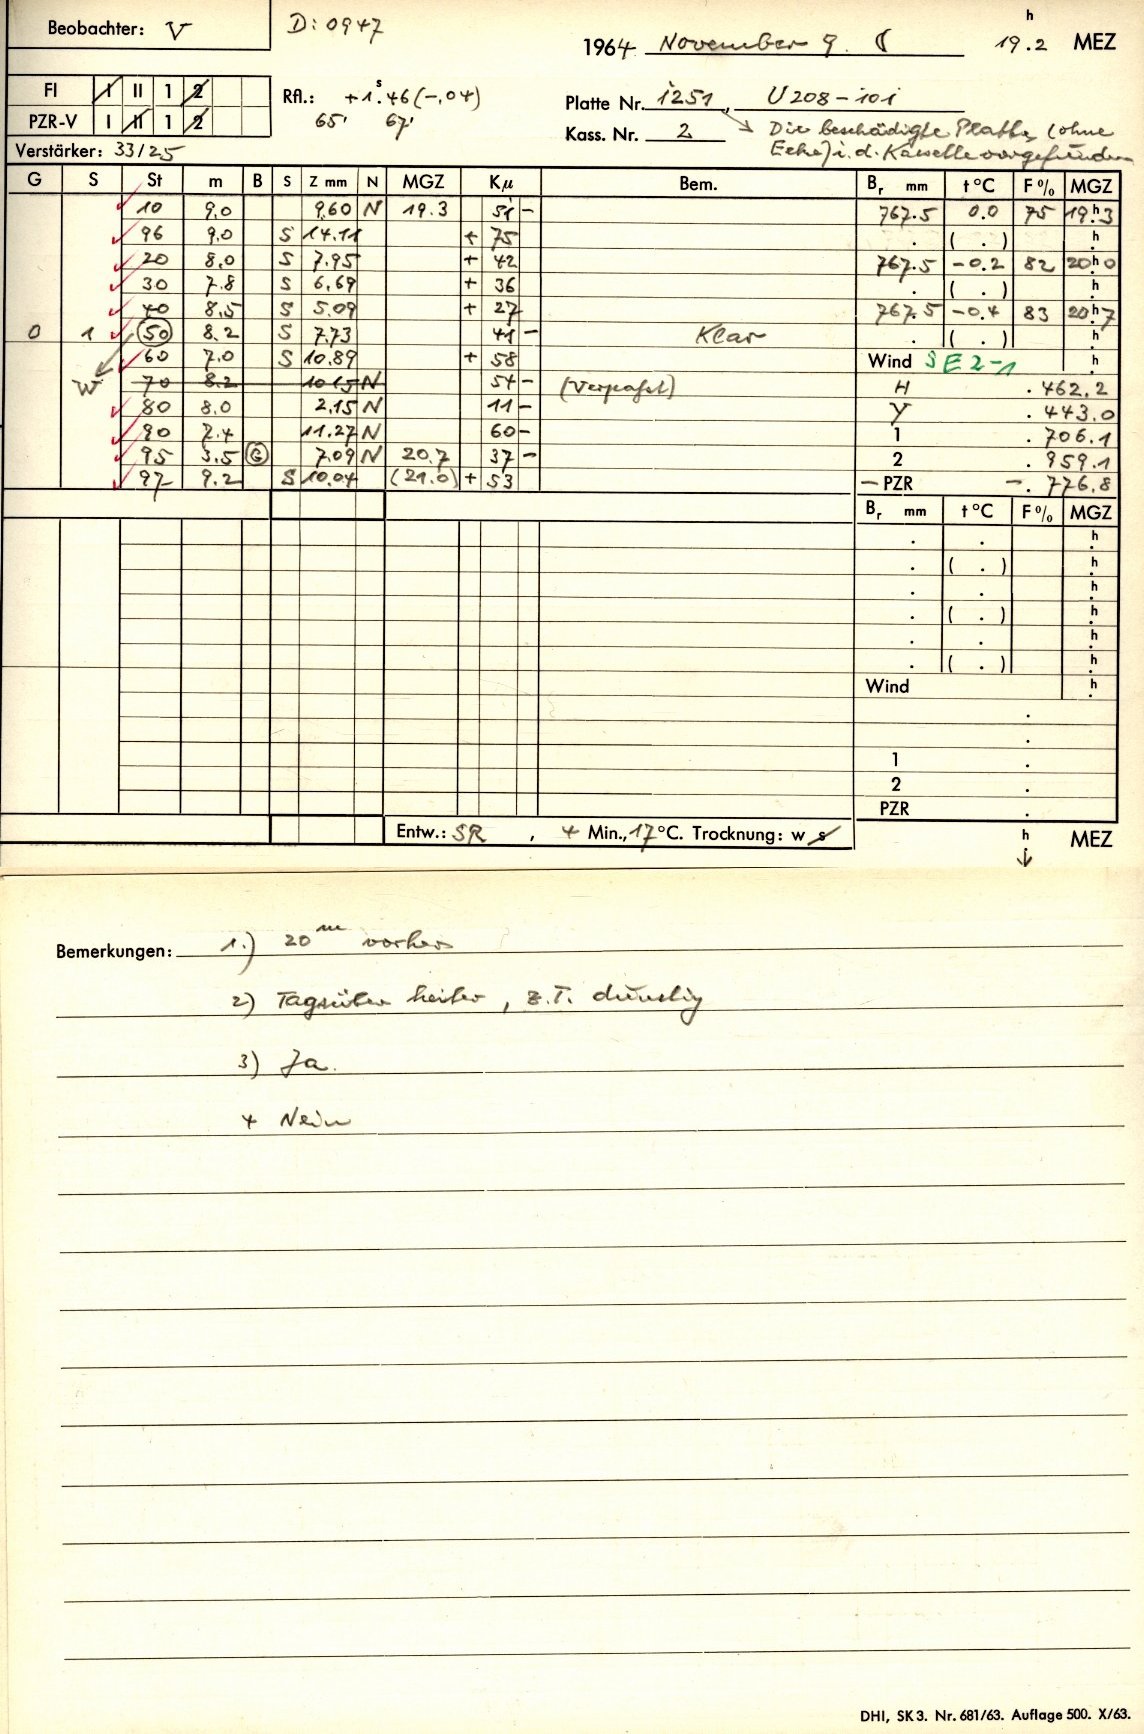 Beobachter: V
D: 0947
1964 November 9. ☾ 19.2 h MEZ
FI I II 1 2
PZR-V I II 1 2
Rfl.: +1.46 s (-.04)
65' 67'
Platte Nr. 1251, U208-101
Kass. Nr. 2 → Die beschädigte Platte (ohne
Ecke) i. d. Kassette vorgefunden
Verstärker: 33/25
G S St m B S Z mm N MGZ Kμ Bem. Br mm t °C F % MGZ
10 9.0 9.60 N 19.3 51 - 767.5 0.0 75 19.h3
96 9.0 S 14.11 + 75 . ( . ) h
20 8.0 S 7.95 + 42 767.5 -0.2 82 20.h0
30 7.8 S 6.69 + 36 . ( . ) h
40 8.5 S 5.09 + 27 767.5 -0.4 83 20.h7
0 1 50 8.2 S 7.73 41 - Klar . ( . ) h
60 7.0 S 10.89 + 58 Wind SE 2-1 h
W 70 8.2 10.15 N 54 - (Verpaßt) H . 462.2
80 8.0 2.15 N 11 - Y . 443.0
90 7.4 11.27 N 60 - 1 . 706.1
95 3.5 G 7.09 N 20.7 37 - 2 . 959.1
97 9.2 S 10.04 (21.0) + 53 - PZR -. 776.8
Br mm t °C F % MGZ
. . h
. ( . ) h
. . h
. ( . ) h
. . h
. ( . ) h
Wind h
.
.
1 .
2 .
PZR .
Entw.: SR , 4 Min., 17 °C. Trocknung: w s
h MEZ
↓
Bemerkungen: 1.) 20 m vorher
2) Tagsüber heiter, z.T. dunstig
3) Ja.
4 Nein
DHI, SK 3. Nr. 681/63. Auflage 500. X/63.